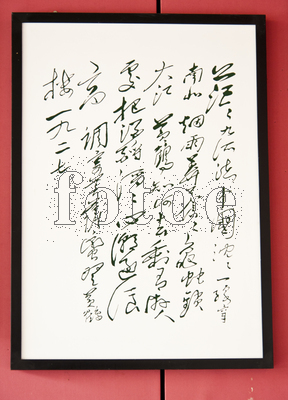 茫々九派流中國沈々一线穿
南北烟雨莽苍々龟蛇锁
大江黄鹤知何去剩有游人
处把酒酹滔々心潮逐浪
高调寄菩萨蛮登黄鹤
楼一九二七
fotoe